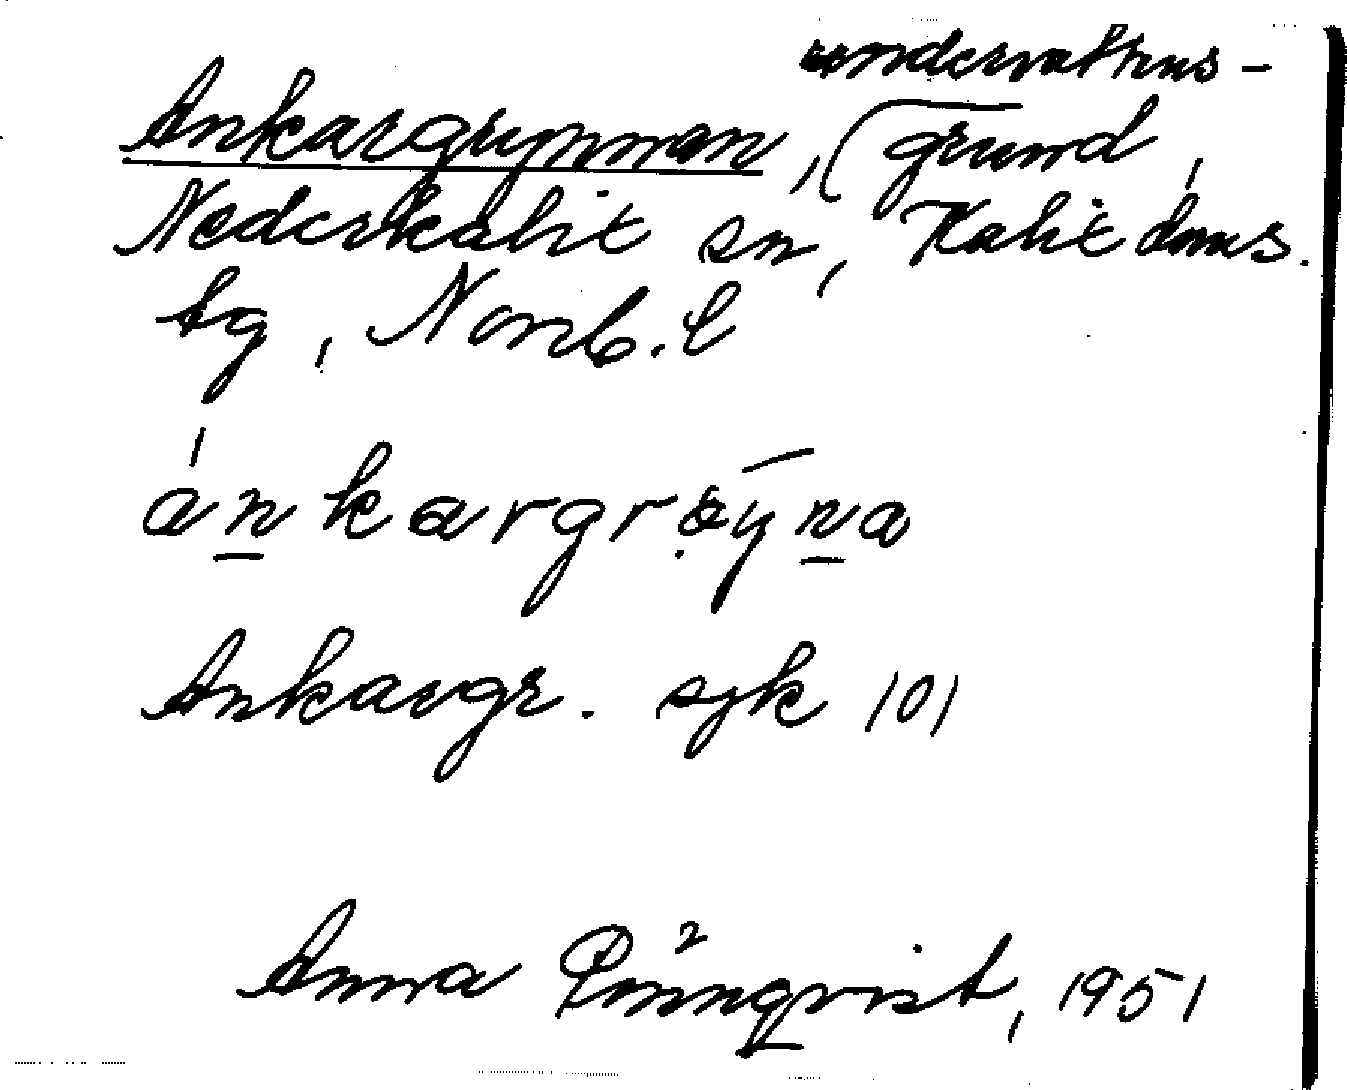 undervattens-
Ankargrynnan, grund,
Nederkalix sn, Kalix doms.
tg, Norrb. l
ánkargrøyna
Ankargr. sjk 101
Anna Rönnqvist, 1951